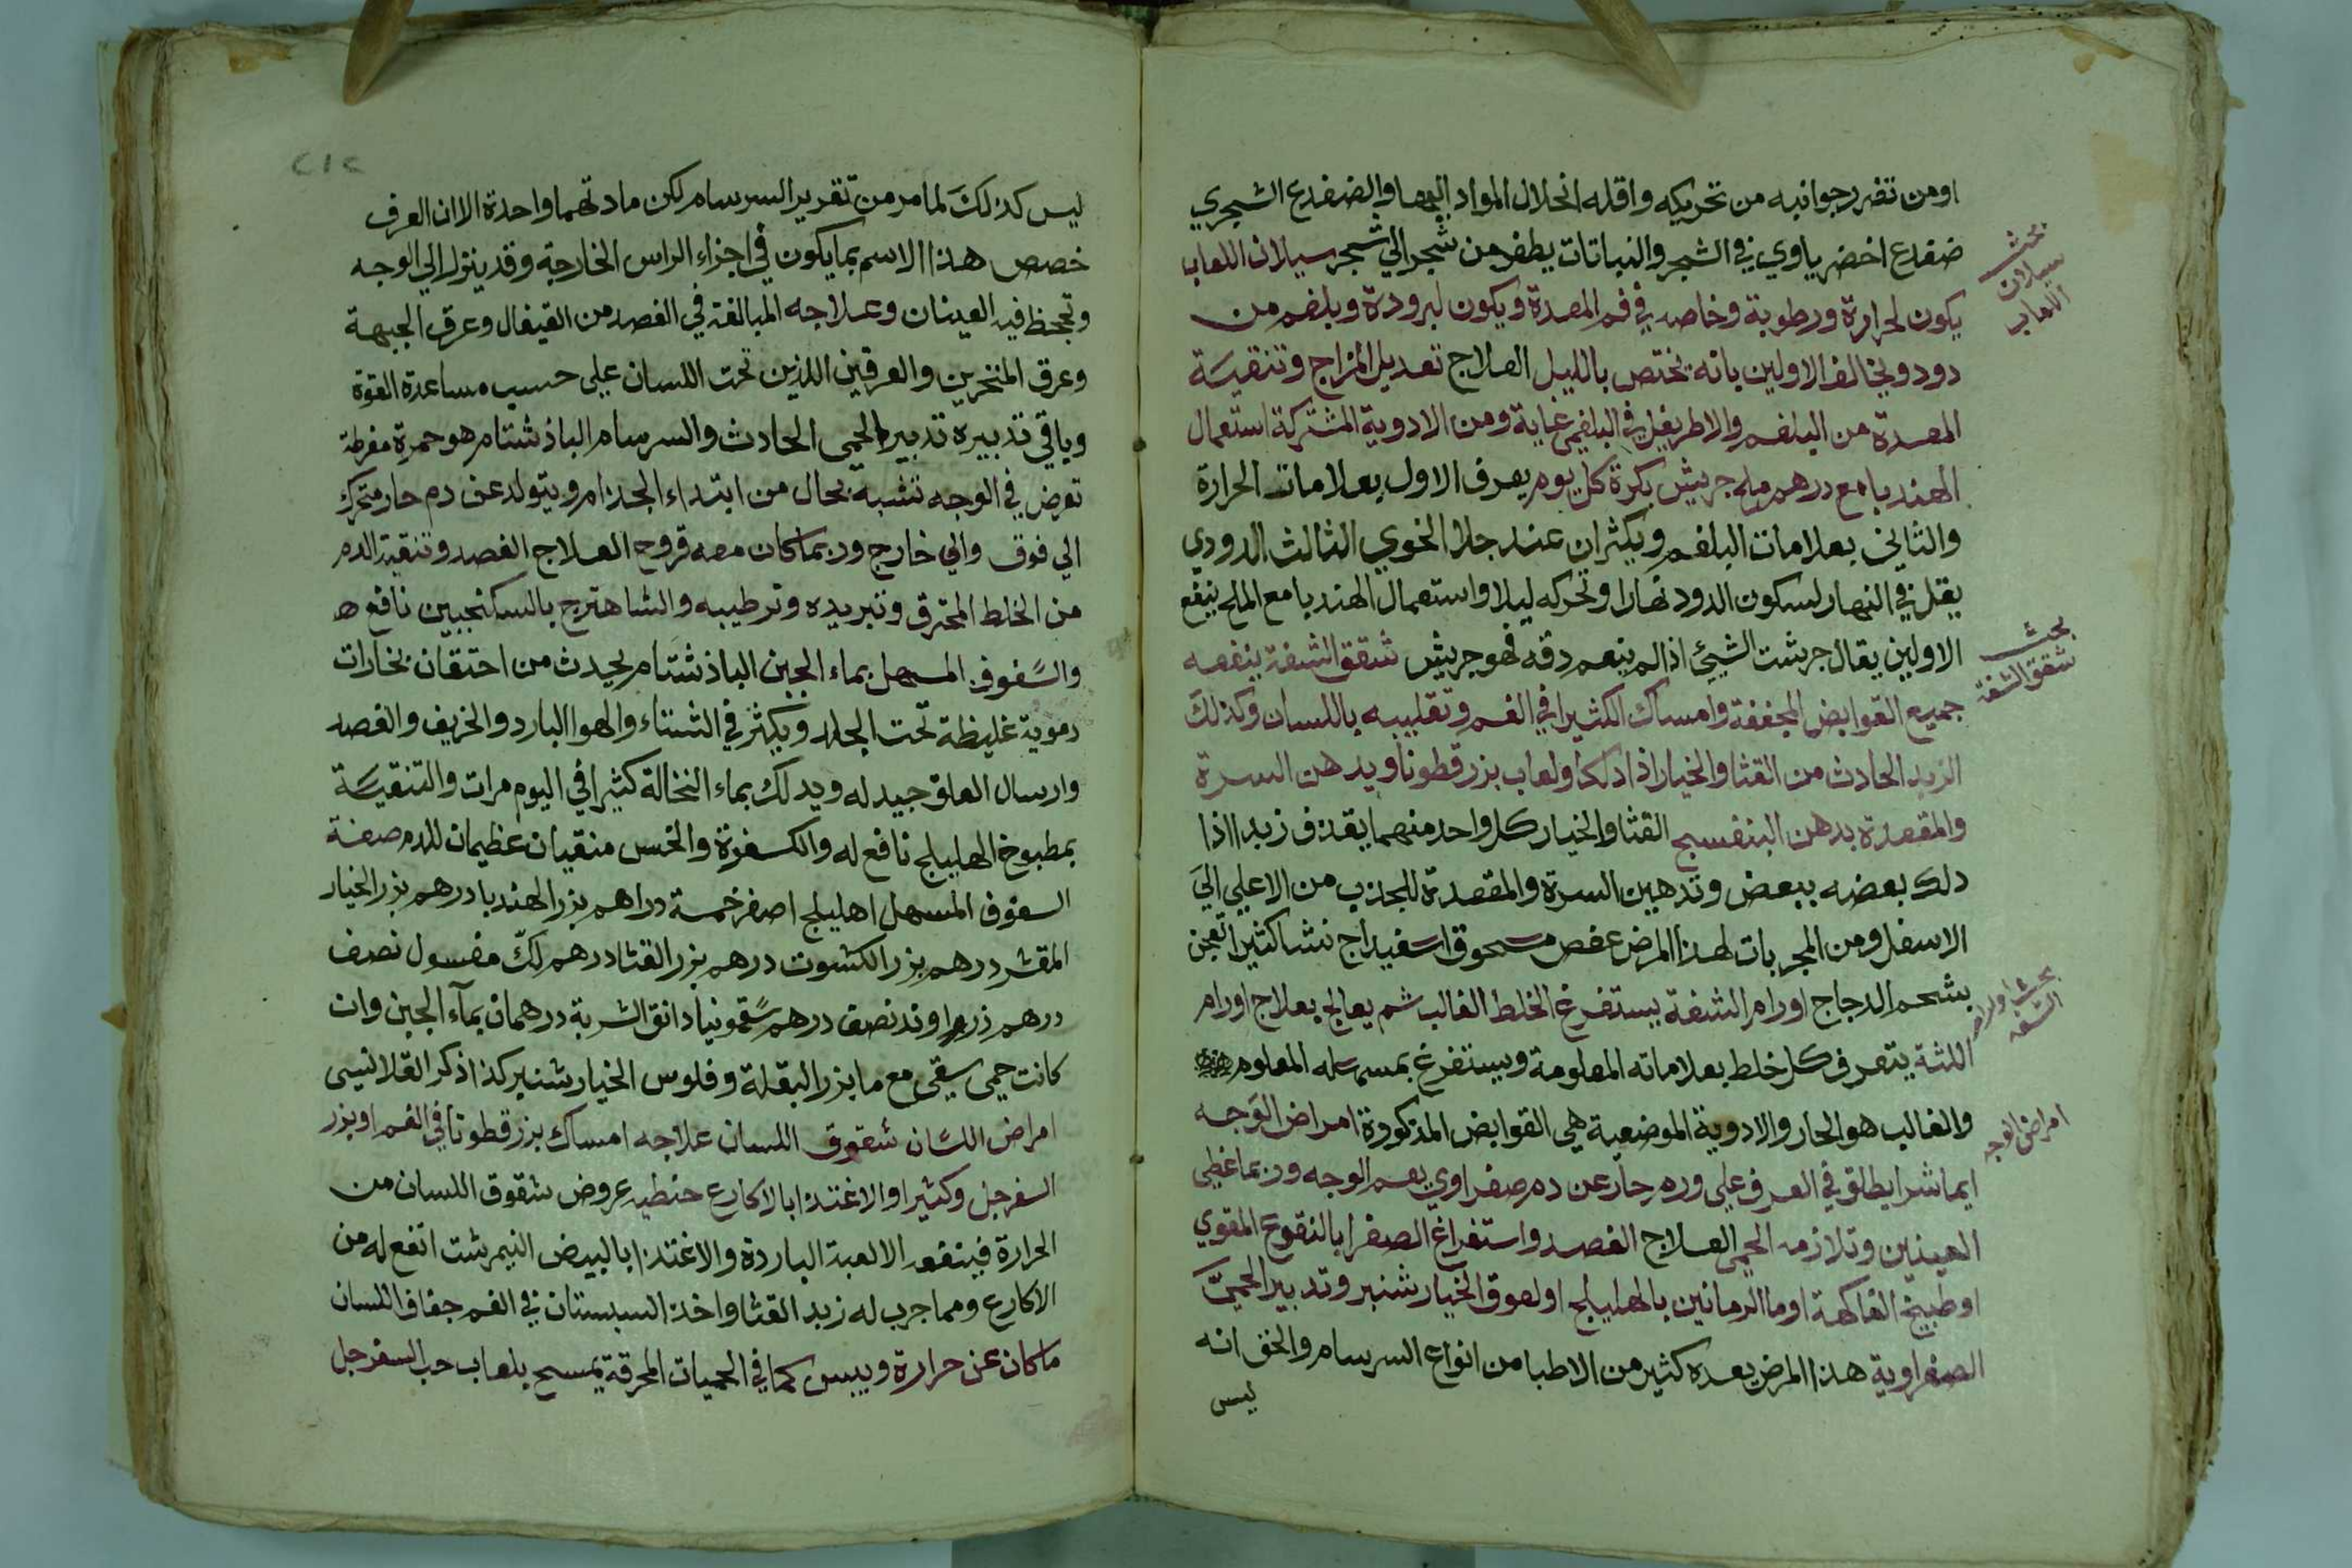 اومن تضرر جوانبه من تحريكه واقله انحلال المواد اليها والضفدع الشجري
ضفدع اخضر ياوي في الشجر والنباتات يطفر من شجر الي شجر سيلان اللعاب
بحث سيلان اللعاب
يكون لحرارة ورطوبة وخاصه في فم المعدة ويكون لبرودة وبلغم من
دود ويخالف الاولين بانه يختص بالليل العلاج تعديل المزاج وتنقيسة
المعدة من البلغم والاطريفل في البلغمي غاية ومن الادوية المشتركة استعمال
الهندبا مع درهم ملح جريش بكرة كل يوم يعرف الاول بعلامات الحرارة
والثاني بعلامات البلغم ويكثران عند جلا الخوي الثالث الدودي
يقل في النهار لسكون الدود نهارا وتحركه ليلا واستعمال الهندبا مع الملح ينفع
الاولين يقال جرشت الشيئ اذا لم ينعم دقه فهو جريش شقق الشفة ينفعه
بحث شقق الشفة
جميع القوابض المجففة وامساك الكثيرا في الفم وتقليبه باللسان وكذلك
الزبد الحادث من القثا والخيار اذا دلكا ولعاب بزر قطونا ويدهن السرة
والمقعدة بدهن البنفسج القثا والخيار كل واحد منهما يقذف زبدا اذا
دلك بعضه ببعض وتدهين السرة والمقعدة للجذب من الاعلي الي
الاسفل ومن المجربات لهذا المرض عفص مسحوق اسفيداج نشا كثيرا تعجن
بشحم الدجاج اورام الشفة يستفرغ الخلط الغالب ثم يعالج بعلاج اورام
بحث اورام الشفه
اللثة يتعرف كل خلط بعلاماته المعلومة ويستفرغ بمسهله المعلوم
والغالب هو الحار والادوية الموضعية هي القوابض المذكورة امراض الوجه
امراض الوجه
ايماشرا يطلق في العرف علي ورم حار عن دم صفراوي يعم الوجه وربما غطي
العينين وتلازمه الحمي العلاج الفصد واستفراغ الصفرا بالنقوع المقوي
او طبيخ الفاكهة او ما الرمانين بالهليلج او لعوق الخيار شنبر وتدبير الحمي
الصفراوية هذا المرض يعده كثير من الاطبا من انواع السرسام والحق انه
ليس
٢١٢
ليس كذلك لما مر من تقرير السرسام لكن مادتهما واحدة الا ان العرف
خصص هذا الاسم بما يكون في اجزاء الراس الخارجة وقد ينزل الي الوجه
وتجحظ فيه العينان وعلاجه المبالغة في الفصد من القيفال وعرق الجبهة
وعرق المنخرين والعرقين اللذين تحت اللسان علي حسب مساعدة القوة
وباقي تدبيره تدبير الحمي الحادث والسرسام الباذشنام هو حمرة مفرطة
تعرض في الوجه تشبه بحال من ابتداء الجذام ويتولد عن دم حار متحرك
الي فوق والي خارج وربما كان معه قروح العلاج الفصد وتنقية الدم
من الخلط المحترق وتبريده وترطيبه والشاهترج بالسكنجبين نافع ه
والسفوف المسهل بماء الجبن الباذشنام يحدث من احتقان بخارات
دموية غليظة تحت الجلد ويكثر في الشتاء والهوا البارد والخريف والفصد
وارسال العلق جيد له ويدلك بماء النخالة كثيرا في اليوم مرات والتنقيسة
بمطبوخ الهليلج نافع له والكسفرة والخس منقيان عظيمان للدم صفة
السفوف المسهل اهليلج اصفر خمسة دراهم بزر الهندبا درهم بزر الخيار
المقشر درهم بزر الكشوت درهم بزر القثا درهم لك مغسول نصف
درهم زراوند نصف درهم سقمونيا دانق الشربة درهمان بماء الجبن وان
كانت حمي سقي مع ما بزر البقلة وفلوس الخيار شنبر كذا ذكر القلانيسي
امراض اللسان شقوق اللسان علاجه امساك بزر قطونا في الفم او بزر
السفرجل وكثيرا والاغتذا بالاكارع حنطيه عروض شقوق اللسان من
الحرارة فينفعه الالعبة الباردة والاغتذا بالبيض النيمرشت انفع له من
الاكارع ومما جرب له زبد القثا واخذ السبستان في الفم جفاف اللسان
ما كان عن حرارة ويبس كما في الحميات المحرقة يمسح بلعاب حب السفرجل